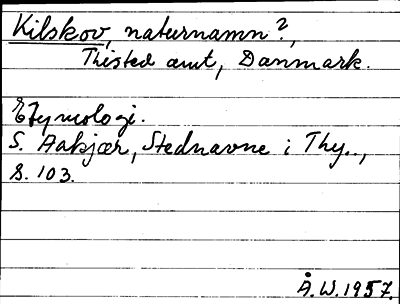 Kilskov, naturnamn?,
Thisted amt, Danmark.
Etymologi.
S. Aakjær, Stednavne i Thy..,
s. 103.
Å.W. 1957.